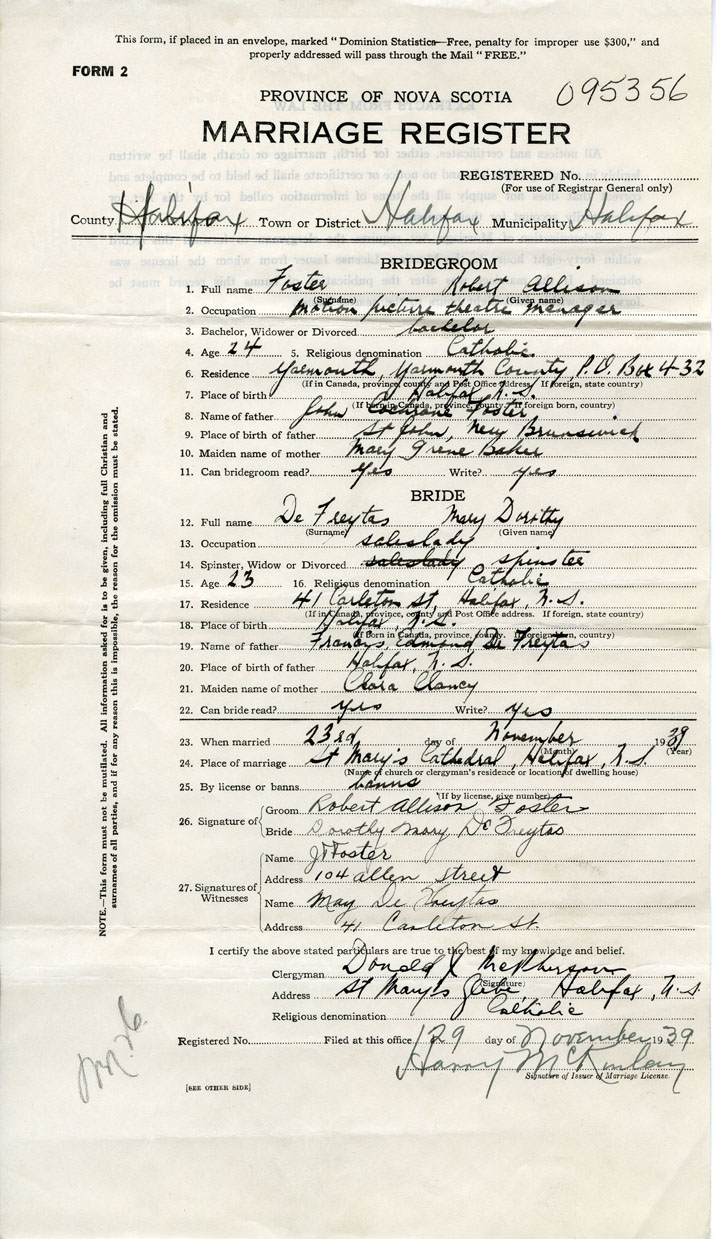 This form, if placed in an envelope, marked "Dominion Statistics—Free, penalty for improper use $300," and
properly addressed will pass through the Mail "FREE."
FORM 2
PROVINCE OF NOVA SCOTIA 095356
MARRIAGE REGISTER
REGISTERED No.
(For use of Registrar General only)
County Halifax Town or District Halifax Municipality Halifax
BRIDEGROOM
1. Full name Foster Robert Allison
(Surname) (Given name)
2. Occupation motion picture theatre manager
3. Bachelor, Widower or Divorced bachelor
4. Age 24 5. Religious denomination Catholic
6. Residence Yarmouth, Yarmouth County P.O. Box 432
(If in Canada, province, county and Post Office address. If foreign, state country)
7. Place of birth Halifax N.S.
(If born in Canada, province, county. If foreign born, country)
8. Name of father John Cochrane Foster
9. Place of birth of father St John, New Brunswick
10. Maiden name of mother Mary Irene Baker
11. Can bridegroom read? yes Write? yes
BRIDE
12. Full name De Freytas Mary Dorothy
(Surname) (Given name)
13. Occupation saleslady
14. Spinster, Widow or Divorced saleslady spinster
15. Age 23 16. Religious denomination Catholic
17. Residence 41 Carleton St, Halifax, N.S.
(If in Canada, province, county and Post Office address. If foreign, state country)
18. Place of birth Halifax, N.S.
(If born in Canada, province, county. If foreign born, country)
19. Name of father Francis Edmund De Freytas
20. Place of birth of father Halifax, N.S.
21. Maiden name of mother Clara Clancy
22. Can bride read? yes Write? yes
23. When married 23rd day of November 1939
(Month) (Year)
24. Place of marriage St Mary's Cathedral, Halifax, N.S.
(Name of church or clergyman's residence or location of dwelling house)
25. By license or banns banns
(If by license, give number)
26. Signature of Groom Robert Allison Foster
Bride Dorothy Mary De Freytas
27. Signatures of Witnesses
Name J Foster
Address 104 Allen Street
Name May De Freytas
Address 41 Carleton St.
I certify the above stated particulars are true to the best of my knowledge and belief.
Clergyman Donald J McPherson
(Signature)
Address St Mary's Glebe, Halifax, N.S.
Religious denomination Catholic
Registered No. Filed at this office 29 day of November 1939
Harry McKinlay
Signature of Issuer of Marriage License.
[SEE OTHER SIDE]
NOTE.—This form must not be mutilated. All information asked for is to be given, including full Christian and
surnames of all parties, and if for any reason this is impossible, the reason for the omission must be stated.